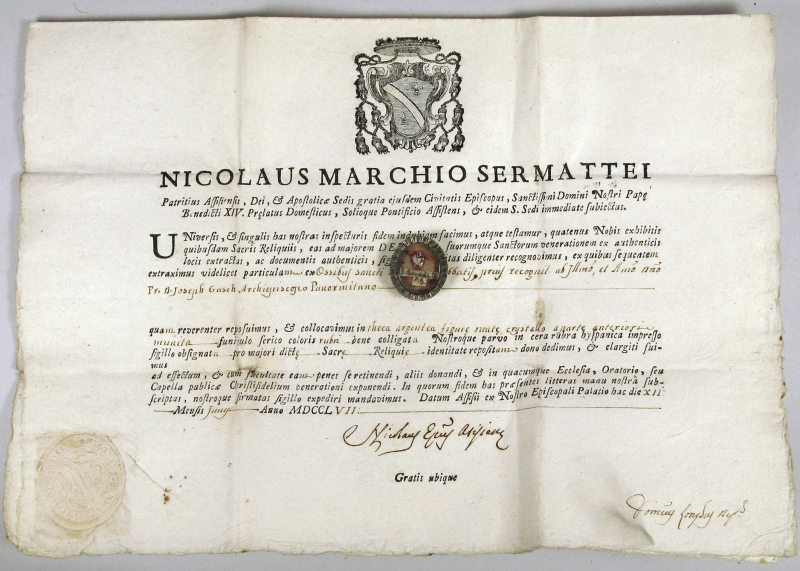 NICOLAUS MARCHIO SERMATTEI
Patritius Assisiensis, Dei, & Apostolicæ Sedis gratia ejusdem Civitatis Episcopus, Sanctissimi Domini Nostri Papę
Benedicti XIV. Pręlatus Domesticus, Solioque Pontificio Assistens, & eidem S. Sedi immediate subiectus.
UNiversis, & singulis has nostras inspecturis fidem indubiam facimus, atque testamur, quatenus Nobis exhibitis
quibusdam Sacris Reliquiis, eas ad majorem DE suorumque Sanctorum venerationem ex authenticis
locis extractas, ac documentis authenticis, sig tas diligenter recognovimus, ex quibus sequentem
extraximus videlicet particulam ex Ossibus sancti Abbatis, prius recognit ab Illmo, et
Pr. D. Joseph Gasch Archiepiscopo Panormitano
quam reverenter reposuimus, & collocavimus in theca argentea figure ovate, crystallo a parte anteriore
munita funiculo serico coloris rubri bene colligata Nostroque parvo in cera rubra hyspanica impresso
sigillo obsignata pro majori dictę Sacrę Reliquię identitate repositam dono dedimus, & elargiti fui-
mus
ad effectum, & cum facultate eam penes se retinendi, aliis donandi, & in quacumque Ecclesia, Oratorio, seu
Capella publicæ Christifidelium venerationi exponendi. In quorum fidem has præsentes litteras manu nostra sub-
scriptas, nostroque firmatas sigillo expediri mandavimus. Datum Assisii ex Nostro Episcopali Palatio hac die XII
Mensis Junij Anno MDCCLVII.
Nicolaus Epus Asisien
Gratis ubique